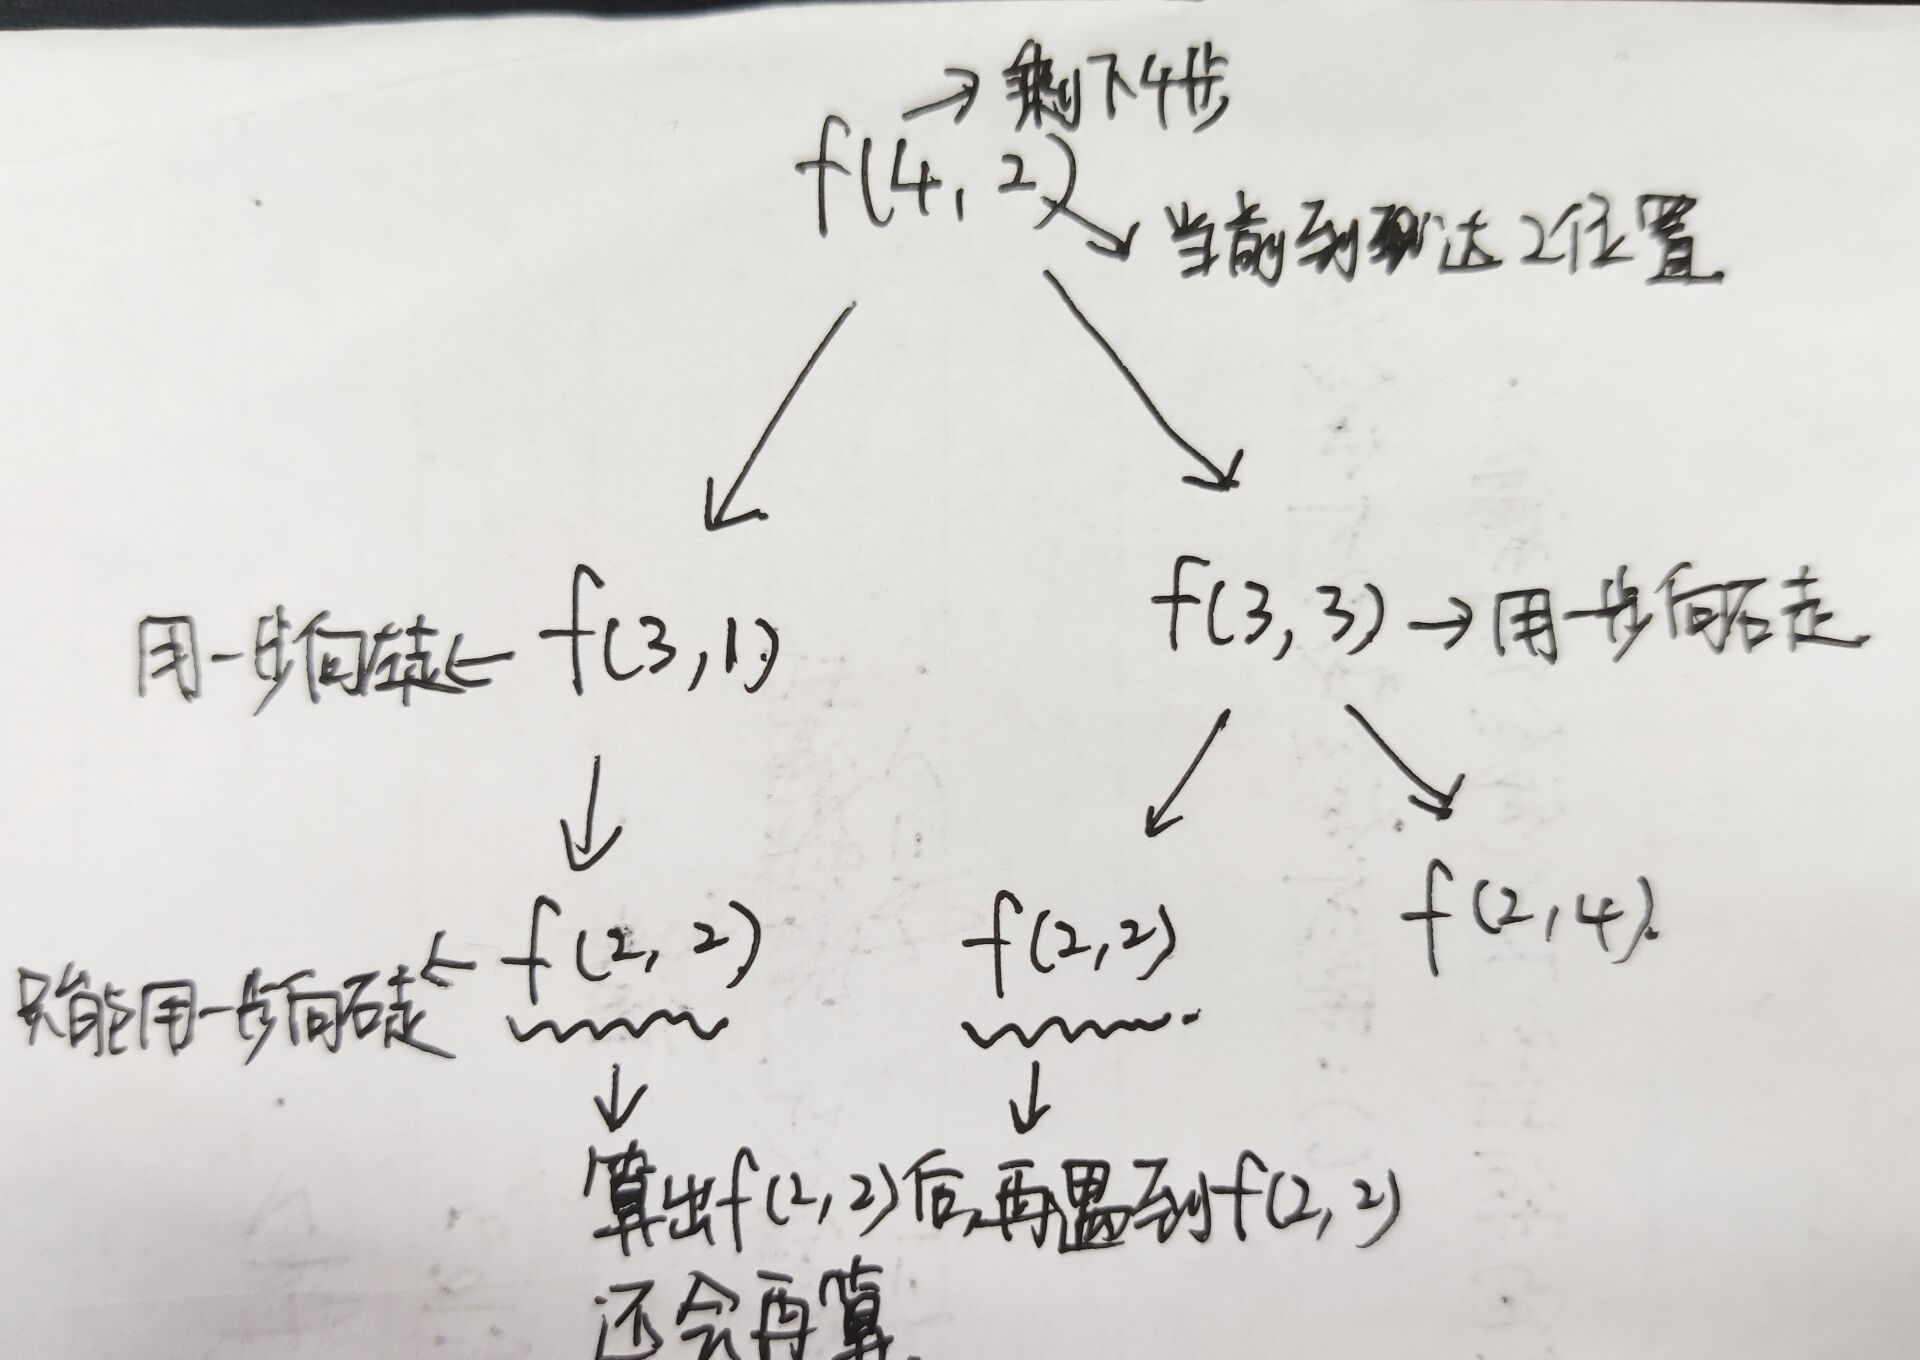 →剩下4步
f(4, 2)
→当前到达2位置
用一步向左走← f(3, 1)
f(3, 3) → 用一步向右走
只能用一步向右走← f(2, 2)
f(2, 2)
f(2, 4).
算出f(2, 2)后,再遇到f(2, 2)
还会再算.